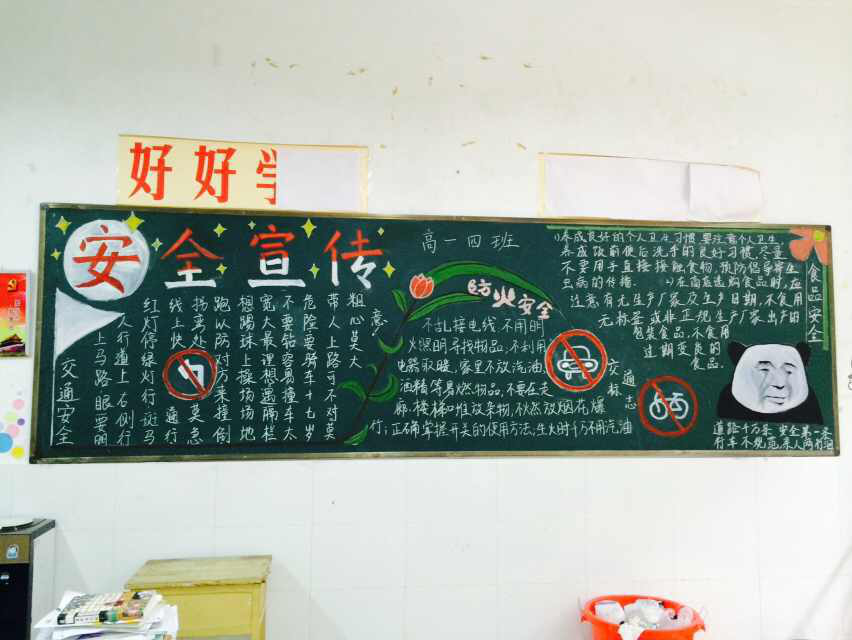 好好学
安全宣传
高一四班
交通安全
上马路眼要明
人行道上右侧行
红灯停绿灯行斑马
线上快通行
拐弯处莫急
跑以防对方来撞倒
想踢球上操场场地
宽大最理想遇隔栏
不要钻容易撞车太
危险要骑车十七岁
带人上路可不对莫
粗心莫大
意
防火安全
不乱接电线,不用明
火照明寻找物品,不利用
电器取暖,寝里不放汽油,
酒精等易燃物品,不要在走
廊、楼梯口堆放杂物,秋然放烟花爆
行;正确掌握开关的使用方法;生火时千万不用汽油
交通
标志
食品安全
1)养成良好的个人卫生习惯,要注意个人卫生,
养成饭前便后洗手的良好习惯,尽量
不要用手直接接触食物,预防侣等寄生
虫病的传播.
2)在商店选购食品时,应
注意有无生产厂家及生产日期,不食用
无标签或非正规生产厂家出产的
包装食品,不食用
过期变质的
食品.
道路千万条,安全第一条
行车不规范,亲人两行泪